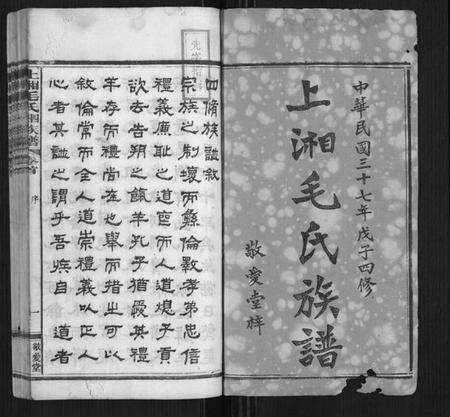 中華民國三十七年戊子四修
上湘毛氏族譜
敬愛堂梓
四脩族譜敘
宗族之制壞而彝倫斁孝弟忠信
禮義廉恥之道䘮而人道熄子貢
欲去告朔之餼羊孔子猶愛其禮
羊存而禮尚在也舉而措之可以
敘倫常而全人道崇禮義以正人
心者其譜之謂乎吾族自 道者
上湘毛氏四修族譜 卷首
序
一
敬愛堂